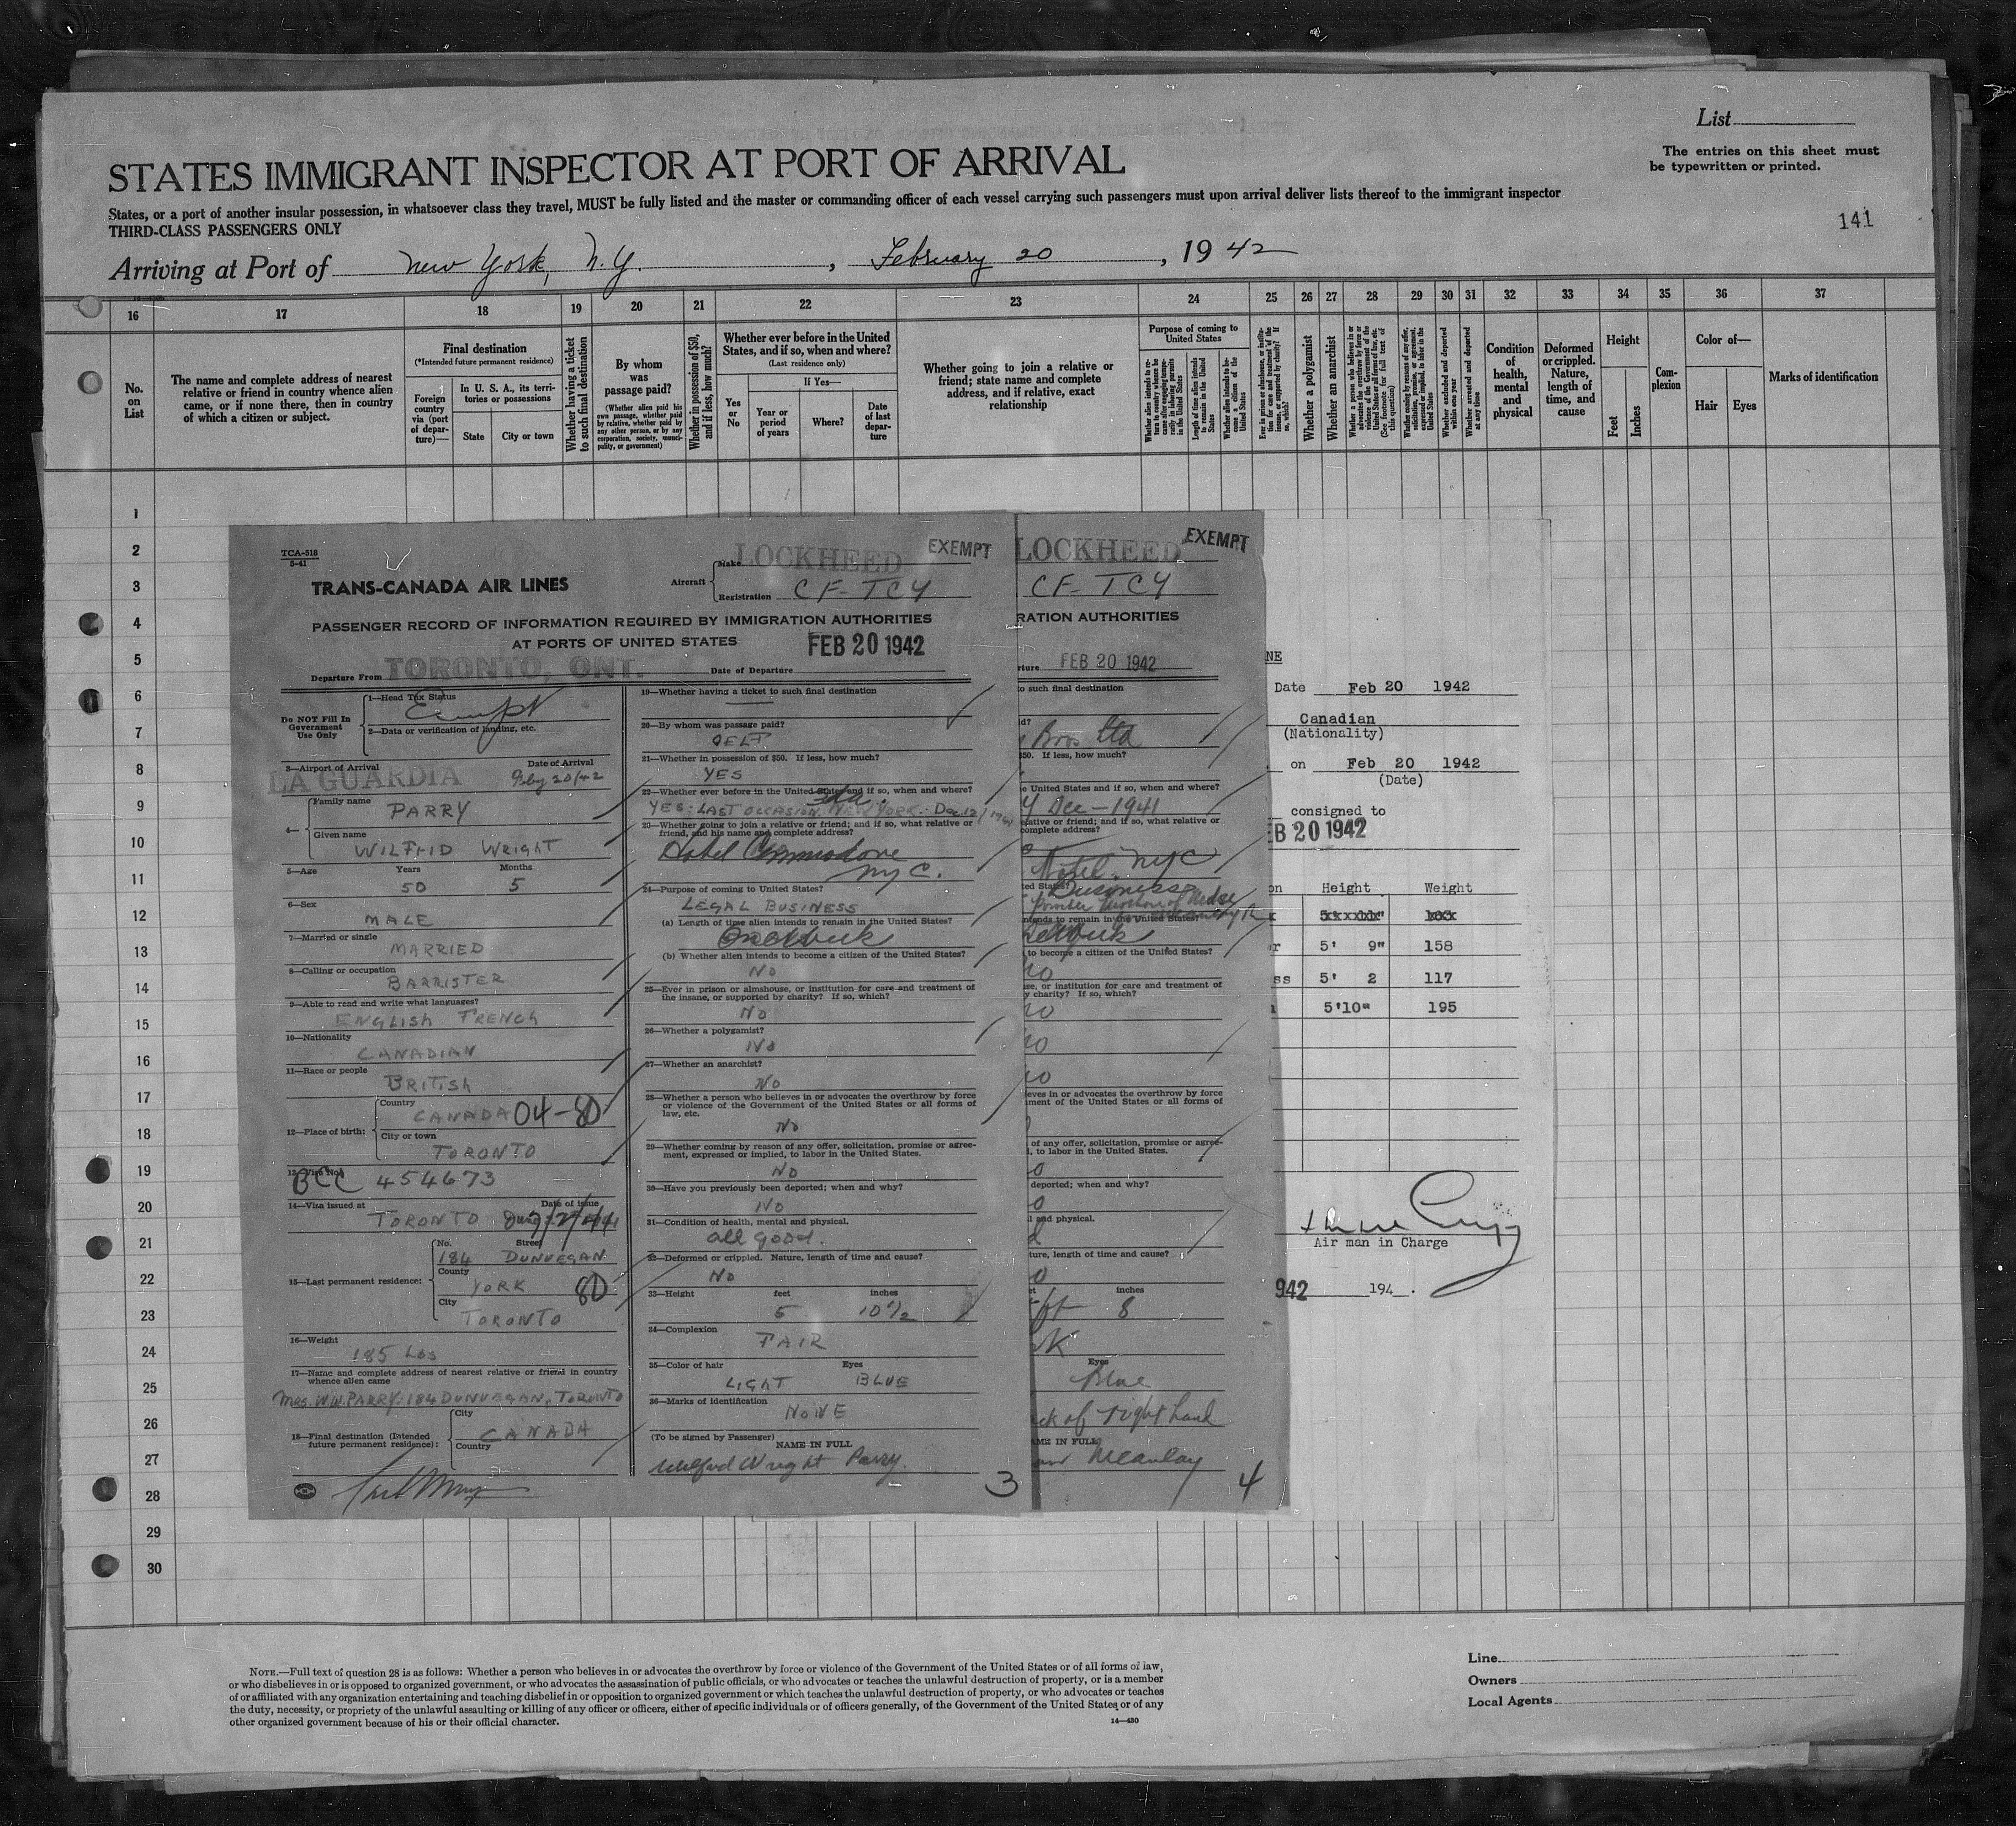 List
The entries on this sheet must
be typewritten or printed.
STATES IMMIGRANT INSPECTOR AT PORT OF ARRIVAL
States, or a port of another insular possession, in whatsoever class they travel, MUST be fully listed and the master or commanding officer of each vessel carrying such passengers must upon arrival deliver lists thereof to the immigrant inspector
THIRD-CLASS PASSENGERS ONLY
141
Arriving at Port of New York, N.Y. , February 20 , 1942
16 17 18 19 20 21 22 23 24 25 26 27 28 29 30 31 32 33 34 35 36 37
No. on List
The name and complete address of nearest relative or friend in country whence alien came, or if none there, then in country of which a citizen or subject.
Final destination
(*Intended future permanent residence)
Foreign country via (port of departure)—
In U. S. A., its territories or possessions
State
City or town
Whether having a ticket to such final destination
By whom was passage paid?
(Whether alien paid his own passage, whether paid by relative, whether paid by any other person, or by any corporation, society, municipality, or government)
Whether in possession of $50, and if less, how much?
Whether ever before in the United States, and if so, when and where?
(Last residence only)
If Yes—
Yes or No
Year or period of years
Where?
Date of last departure
Whether going to join a relative or friend; state name and complete address, and if relative, exact relationship
Purpose of coming to United States
Length of time alien intends to remain in the United States
Whether alien intends to become a citizen of the United States
Whether a polygamist
Whether an anarchist
Whether excluded and deported within one year
Whether arrested and deported at any time
Condition of health, mental and physical
Deformed or crippled. Nature, length of time, and cause
Height
Feet
Inches
Complexion
Color of—
Hair
Eyes
Marks of identification
1
2
3
4
5
6
7
8
9
10
11
12
13
14
15
16
17
18
19
20
21
22
23
24
25
26
27
28
29
30
TCA-518
5-41
TRANS-CANADA AIR LINES
Aircraft
Make LOCKHEED
EXEMPT
Registration CF-TCY
PASSENGER RECORD OF INFORMATION REQUIRED BY IMMIGRATION AUTHORITIES
AT PORTS OF UNITED STATES
FEB 20 1942
Departure From TORONTO, ONT.
Date of Departure
Do NOT Fill In
Government
Use Only
1—Head Tax Status
Exempt
2—Data or verification of landing, etc.
3—Airport of Arrival
Date of Arrival
LA GUARDIA Feby 20/42
4—
Family name
PARRY
Given name
WILFRID WRIGHT
5—Age Years Months
50 5
6—Sex
MALE
7—Married or single
MARRIED
8—Calling or occupation
BARRISTER
9—Able to read and write what languages?
ENGLISH FRENCH
10—Nationality
CANADIAN
11—Race or people
BRITISH
12—Place of birth:
Country
CANADA 04-80
City or town
TORONTO
13—Visa No.
BCC 454673
14—Visa issued at Date of issue
TORONTO
15—Last permanent residence:
No. Street
184 DUNVEGAN
County
YORK 80
City
TORONTO
16—Weight
185 LBS
17—Name and complete address of nearest relative or friend in country
whence alien came
MRS. W.W. PARRY: 184 DUNVEGAN, TORONTO
18—Final destination (Intended
future permanent residence):
City
CANADA
Country
19—Whether having a ticket to such final destination
20—By whom was passage paid?
SELF
21—Whether in possession of $50. If less, how much?
YES
22—Whether ever before in the United States and if so, when and where?
YES: LAST OCCASION NEW YORK. Dec. 12/1941
23—Whether going to join a relative or friend; and if so, what relative or
friend, and his name and complete address?
Hotel Commodore
NYC.
24—Purpose of coming to United States?
LEGAL BUSINESS
(a) Length of time alien intends to remain in the United States?
One Week
(b) Whether alien intends to become a citizen of the United States?
NO
25—Ever in prison or almshouse, or institution for care and treatment of
the insane, or supported by charity? If so, which?
NO
26—Whether a polygamist?
NO
27—Whether an anarchist?
NO
28—Whether a person who believes in or advocates the overthrow by force
or violence of the Government of the United States or all forms of
law, etc.
NO
29—Whether coming by reason of any offer, solicitation, promise or agree-
ment, expressed or implied, to labor in the United States.
NO
30—Have you previously been deported; when and why?
NO
31—Condition of health, mental and physical.
all good.
32—Deformed or crippled. Nature, length of time and cause?
NO
33—Height feet inches
5 10 1/2
34—Complexion
FAIR
35—Color of hair Eyes
LIGHT BLUE
36—Marks of identification
NONE
(To be signed by Passenger)
NAME IN FULL
Wilfrid Wright Parry
3
LOCKHEED
EXEMPT
CF-TCY
RATION AUTHORITIES
rture FEB 20 1942
to such final destination
id?
Bros Ltd
$50. If less, how much?
e United States and if so, when and where?
Y Dec - 1941
relative or friend; and if so, what relative or
complete address?
Hotel. NYC
ted States?
Business
intends to remain in the United States?
to become a citizen of the United States?
NO
use, or institution for care and treatment of
y charity? If so, which?
NO
NO
NO
eves in or advocates the overthrow by force
nment of the United States or all forms of
of any offer, solicitation, promise or agree-
l, to labor in the United States.
deported; when and why?
l and physical.
ture, length of time and cause?
inches
ft 8
Eyes
Blue
ck of right hand
AME IN FULL
4
NE
Date Feb 20 1942
Canadian
(Nationality)
on Feb 20 1942
(Date)
consigned to
B 20 1942
on Height Weight
r 5' 9" 158
ss 5' 2 117
5'10" 195
Air man in Charge
942 194 .
NOTE.—Full text of question 28 is as follows: Whether a person who believes in or advocates the overthrow by force or violence of the Government of the United States or of all forms of law,
or who disbelieves in or is opposed to organized government, or who advocates the assassination of public officials, or who advocates or teaches the unlawful destruction of property, or is a member
of or affiliated with any organization entertaining and teaching disbelief in or opposition to organized government or which teaches the unlawful destruction of property, or who advocates or teaches
the duty, necessity, or propriety of the unlawful assaulting or killing of any officer or officers, either of specific individuals or of officers generally, of the Government of the United States or of any
other organized government because of his or their official character.
14—430
Line
Owners
Local Agents